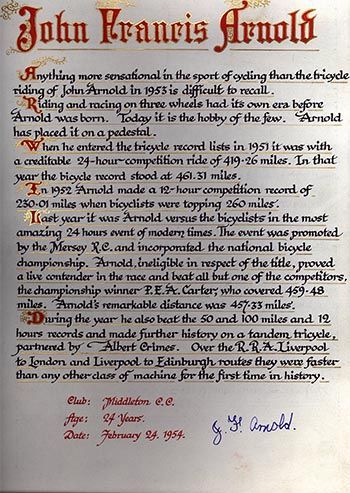 John Francis Arnold
Anything more sensational in the sport of cycling than the tricycle
riding of John Arnold in 1953 is difficult to recall.
Riding and racing on three wheels had its own era before
Arnold was born. Today it is the hobby of the few. Arnold
has placed it on a pedestal.
When he entered the tricycle record lists in 1951 it was with
a creditable 24-hour-competition ride of 419·26 miles. In that
year the bicycle record stood at 461.31 miles.
In 1952 Arnold made a 12-hour competition record of
230·01 miles when bicyclists were topping 260 miles.
Last year it was Arnold versus the bicyclists in the most
amazing 24 hours event of modern times. The event was promoted
by the Mersey R.C. and incorporated the national bicycle
championship. Arnold, ineligible in respect of the title, proved
a live contender in the race and beat all but one of the competitors,
the championship winner P.E.A. Carter, who covered 459·48
miles. Arnold's remarkable distance was 457·33 miles.
During the year he also beat the 50 and 100 miles and 12
hours records and made further history on a tandem tricycle,
partnered by Albert Crimes. Over the R.R.A. Liverpool
to London and Liverpool to Edinburgh routes they were faster
than any other class of machine for the first time in history.
Club: Middleton C.C.
Age: 24 Years.
Date: February 24, 1954.
J. F. Arnold.